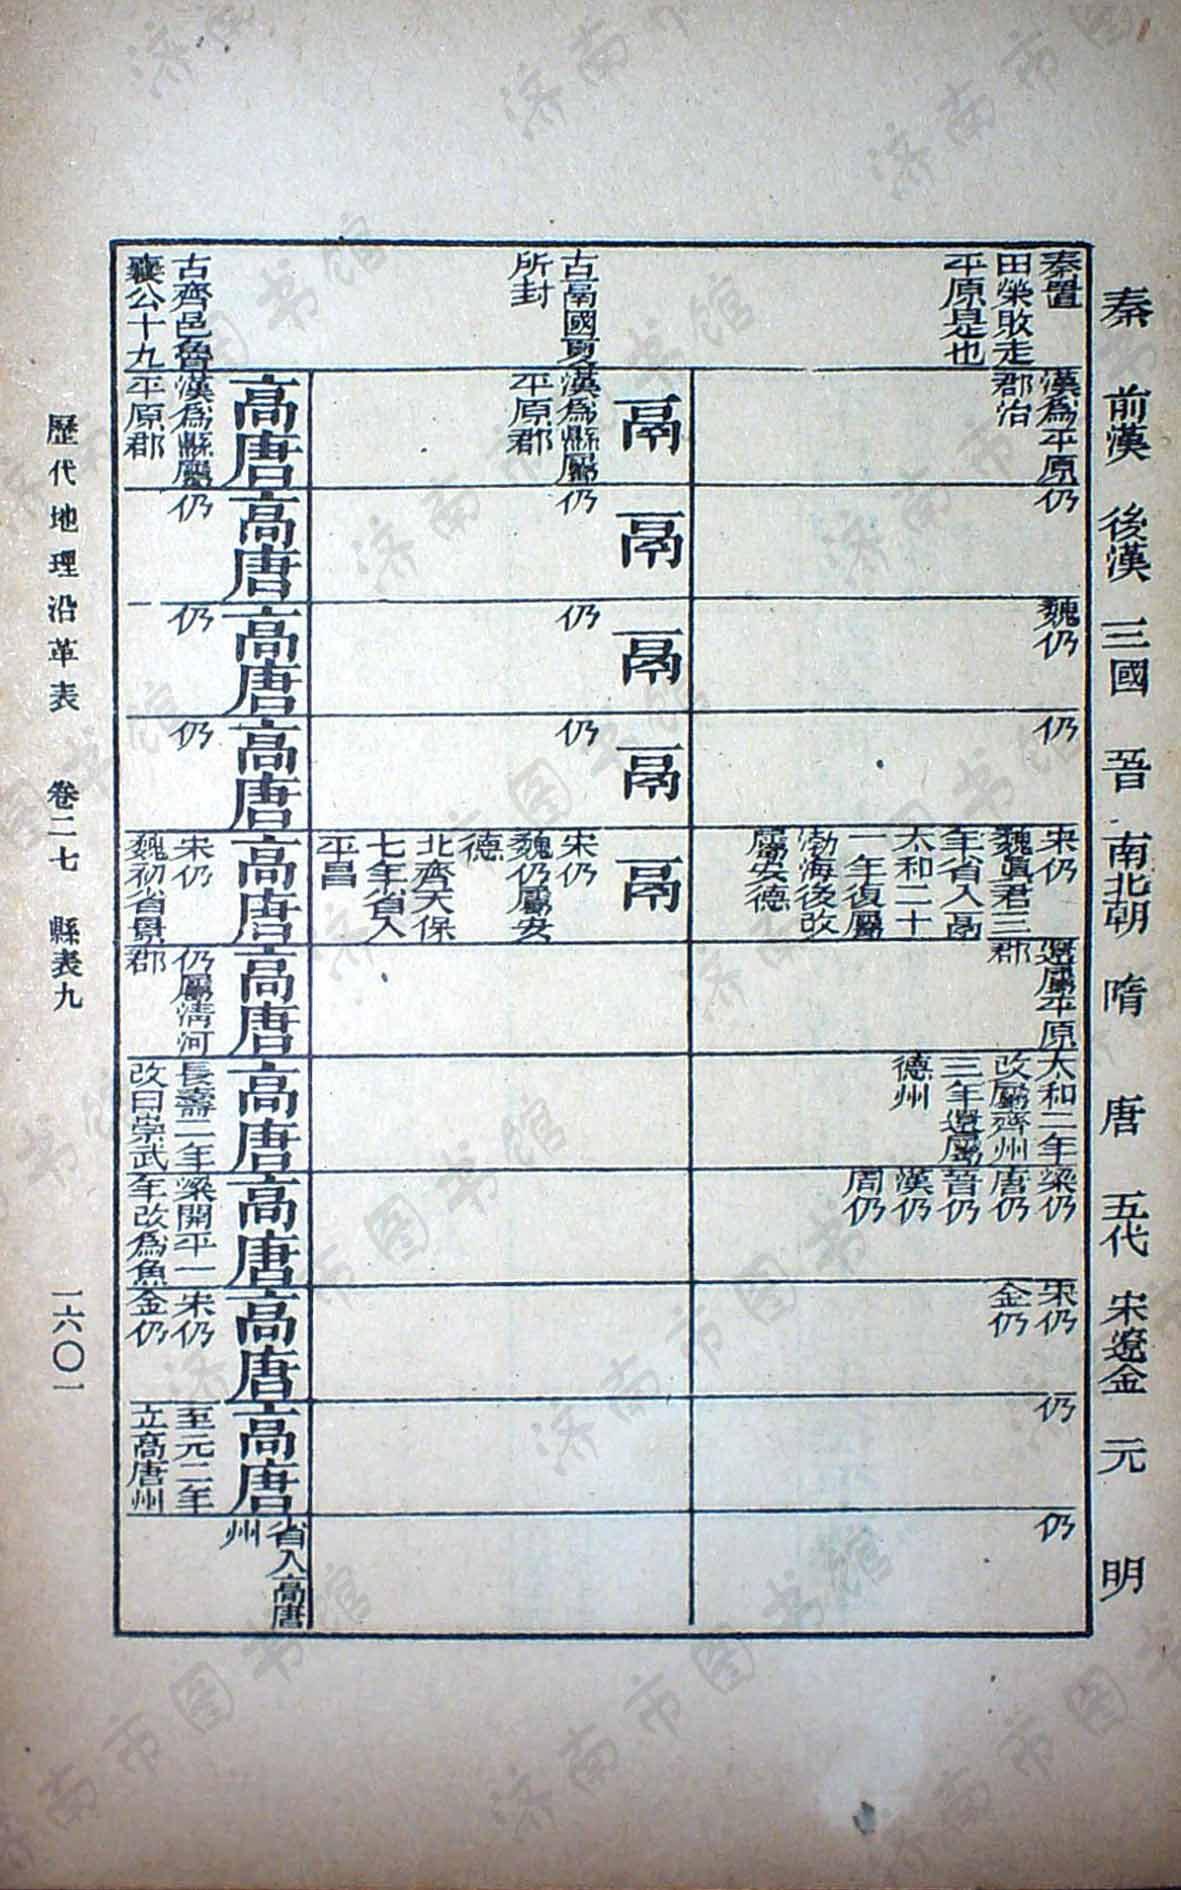 秦
前漢
後漢
三國
晉
南北朝
隋
唐
五代
宋遼金
元
明
秦置
田榮敗走
平原是也
漢為平原
郡治
仍
魏仍
仍
宋仍
魏眞君三
年省入鬲
太和二十
一年復屬
渤海後改
屬安德
還屬平原
郡
太和二年
改屬齊州
三年還屬
德州
梁仍
唐仍
晉仍
漢仍
周仍
宋仍
金仍
仍
仍
古鬲國夏
所封
鬲
漢為縣屬
平原郡
鬲
仍
鬲
仍
鬲
仍
鬲
宋仍
魏仍屬安
德
北齊天保
七年省入
平昌
古齊邑魯
襄公十九
高唐
漢為縣屬
平原郡
高唐
仍
高唐
仍
高唐
仍
高唐
宋仍
魏初省景
高唐
仍屬清河
郡
高唐
長壽二年
改曰崇武
高唐
梁開平二
年改為魚
高唐
宋仍
金仍
高唐
至元二年
立高唐州
省入高唐
州
歷代地理沿革表 卷二七 縣表九 一六〇一
济南市图书馆